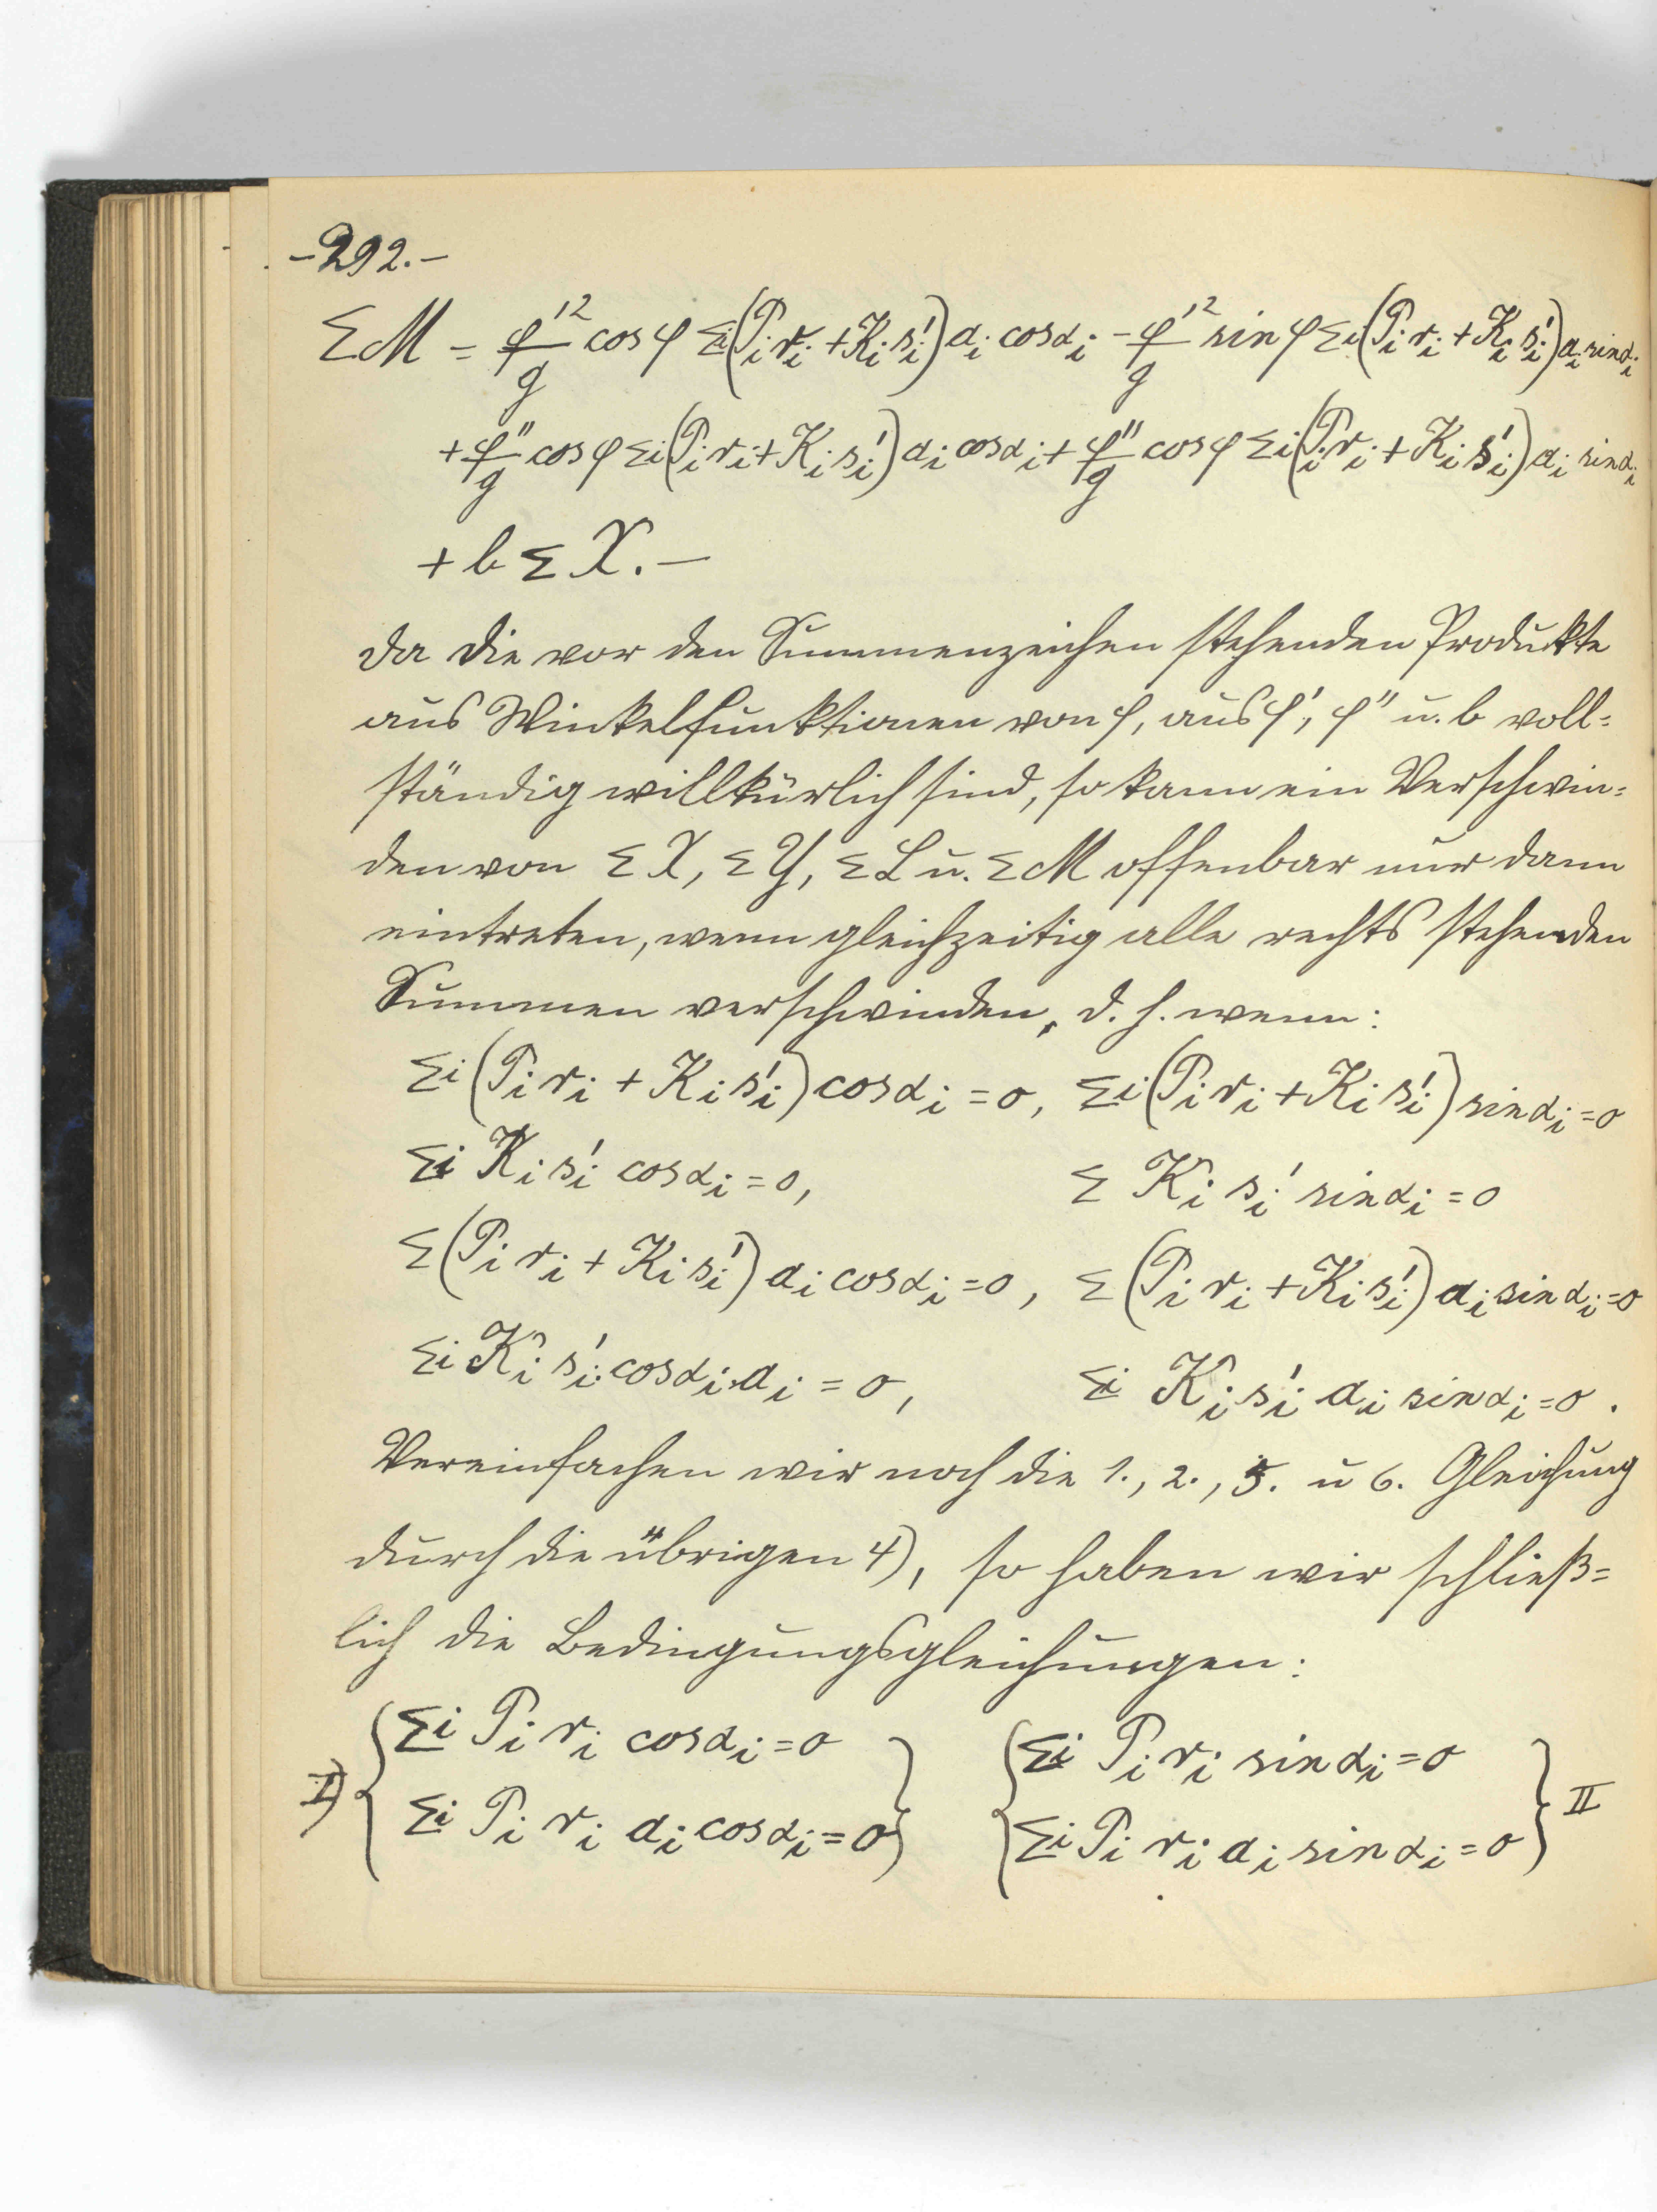 -292.-
ΣM = φ'²/g cos φ Σi(Pi ri + Ki si') ai cos αi - φ'²/g sin φ Σi(Pi ri + Ki si') ai sin αi
+ φ''/g cos φ Σi(Pi ri + Ki si') ai cos αi + φ''/g cos φ Σi(Pi ri + Ki si') ai sin αi
+ b Σ X. —
da die vor den Summenzeichen stehenden Produkte
aus Winkelfunktionen von φ, aus φ', φ'' u. b voll=
ständig willkürlich sind, so kann ein Verschwin=
den von Σ X, Σ Y, Σ L u. Σ M offenbar nur dann
eintreten, wenn gleichzeitig alle rechts stehenden
Summen verschwinden, d. h. wenn:
Σi (Pi ri + Ki si') cos αi = 0, Σi (Pi ri + Ki si') sin αi = 0
Σi Ki si' cos αi = 0, Σ Ki si' sin αi = 0
Σ (Pi ri + Ki si') ai cos αi = 0, Σ (Pi ri + Ki si') ai sin αi = 0
Σi Ki si' cos αi. ai = 0, Σi Ki si' ai sin αi = 0.
Vereinfachen wir noch die 1., 2., 5. u 6. Gleichung
durch die übrigen 4), so haben wir schließ=
lich die Bedingungsgleichungen:
I) { Σi Pi ri cos αi = 0 } { Σi Pi ri sin αi = 0 } II
{ Σi Pi ri ai cos αi = 0 } { Σi Pi ri ai sin αi = 0 }